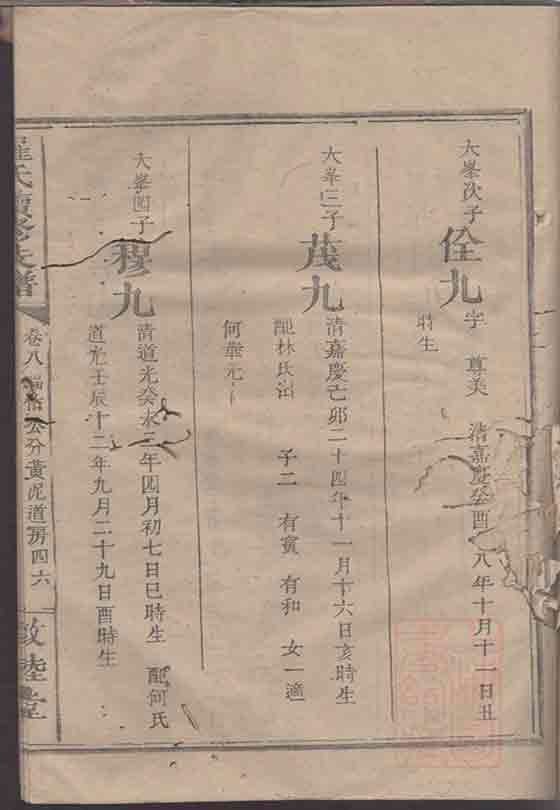 大峯次子
佺九
字 尊美 清嘉慶癸酉 八年十月十一日丑
時生
大峯三子
茂九
清嘉慶己卯二十四年十一月十六日亥時生
配林氏治 子二 有賓 有和 女一適
何華元
大峯四子
穆九
清道光癸未三年四月初七日巳時生 配何氏
道光壬辰十二年九月二十九日酉時生
氏續修族譜
卷八
公分黃泥道房四六
敦睦堂